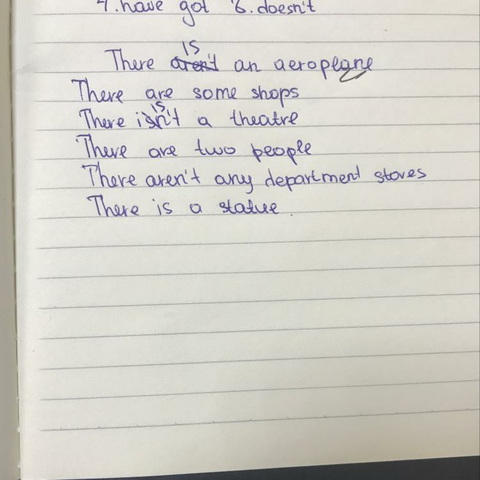 7. have got 8. doesn't
is
There aren't an aeroplane
There are some shops
is
There isn't a theatre
There are two people
There aren't any department stores
There is a statue.